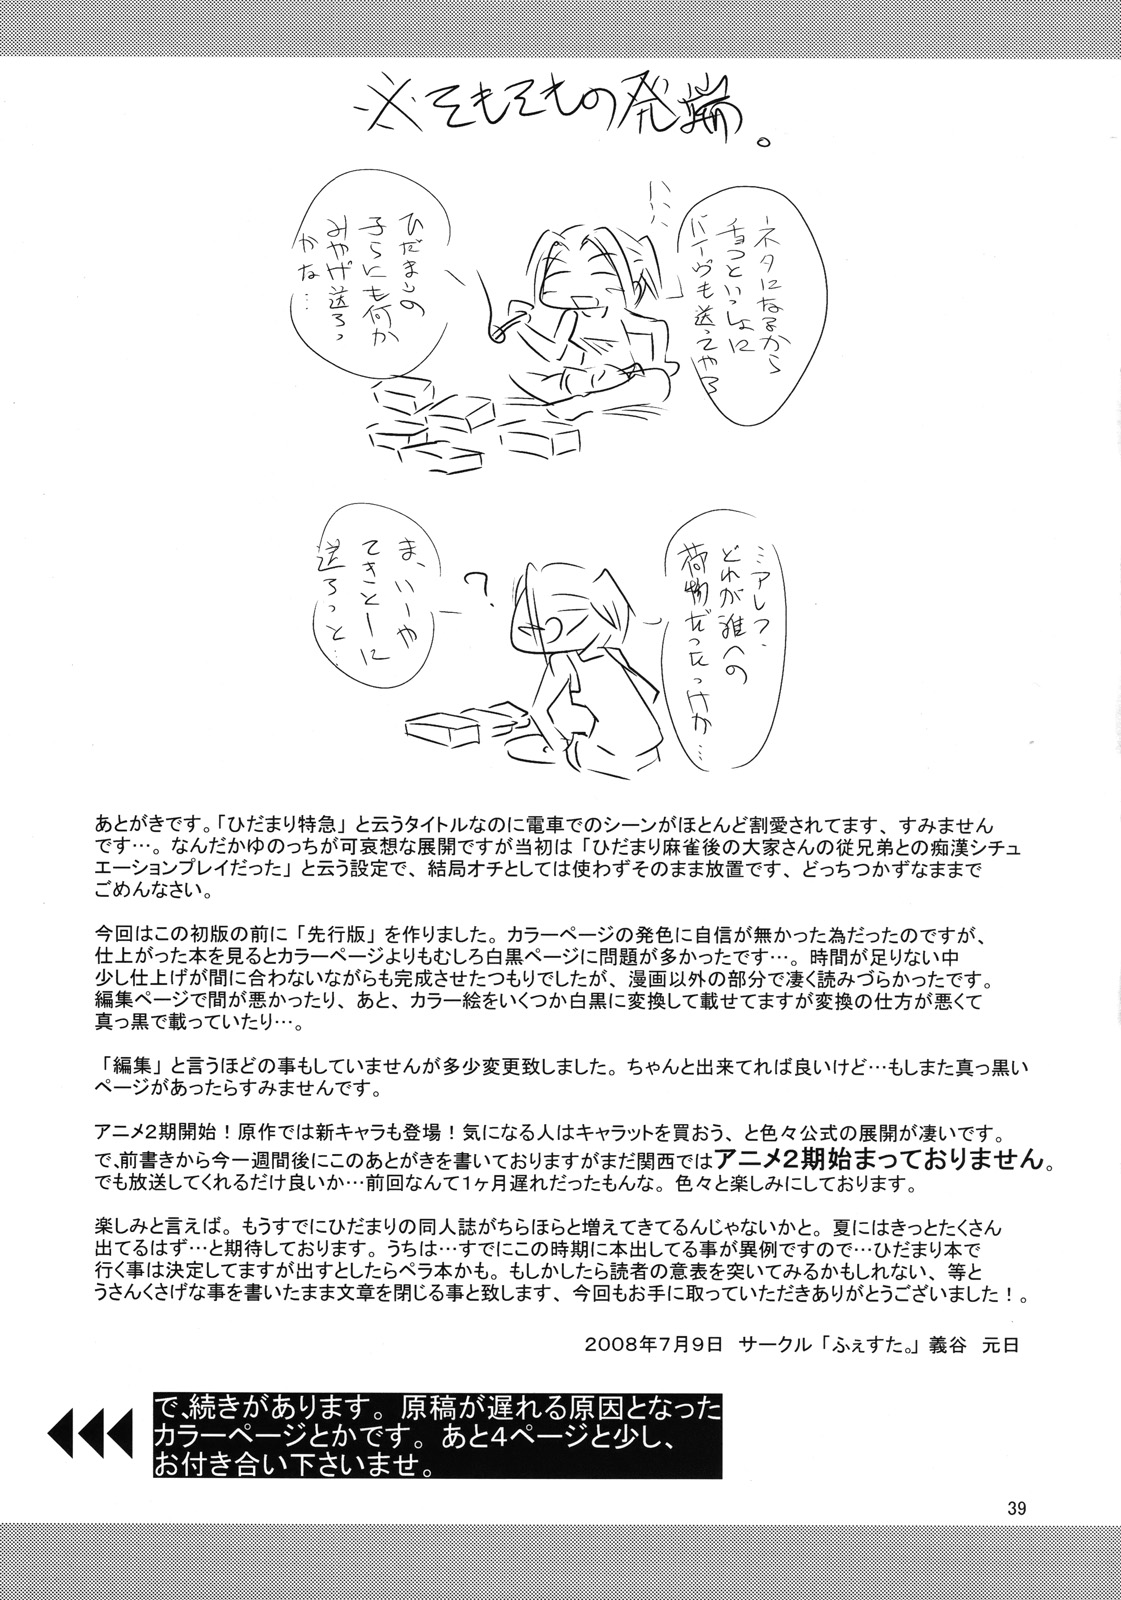 ※そもそもの発端。
ネタになるから
ちょっといっしょに
バイヴも送ってやろ
ひだまりの
子らにも何か
みやげ送ろっ
かな…
ミアレフ、
どれが誰への
荷物だったっけか…
?
ま、いーや
てきとーに
送ろっと…
あとがきです。「ひだまり特急」と云うタイトルなのに電車でのシーンがほとんど割愛されてます、すみません
です…。なんだかゆのっちが可哀想な展開ですが当初は「ひだまり麻雀後の大家さんの従兄弟との痴漢シチュ
エーションプレイだった」と云う設定で、結局オチとしては使わずそのまま放置です、どっちつかずなままで
ごめんなさい。
今回はこの初版の前に「先行版」を作りました。カラーページの発色に自信が無かった為だったのですが、
仕上がった本を見るとカラーページよりもむしろ白黒ページに問題が多かったです…。時間が足りない中
少し仕上げが間に合わないながらも完成させたつもりでしたが、漫画以外の部分で凄く読みづらかったです。
編集ページで間が悪かったり、あと、カラー絵をいくつか白黒に変換して載せてますが変換の仕方が悪くて
真っ黒で載っていたり…。
「編集」と言うほどの事もしていませんが多少変更致しました。ちゃんと出来てれば良いけど…もしまた真っ黒い
ページがあったらすみませんです。
アニメ2期開始！原作では新キャラも登場！気になる人はキャラットを買おう、と色々公式の展開が凄いです。
で、前書きから今一週間後にこのあとがきを書いておりますがまだ関西ではアニメ2期始まっておりません。
でも放送してくれるだけ良いか…前回なんて1ヶ月遅れだったもんな。色々と楽しみにしております。
楽しみと言えば。もうすでにひだまりの同人誌がちらほらと増えてきてるんじゃないかと。夏にはきっとたくさん
出てるはず…と期待しております。うちは…すでにこの時期に本出してる事が異例ですので…ひだまり本で
行く事は決定してますが出すとしたらペラ本かも。もしかしたら読者の意表を突いてみるかもしれない、等と
うさんくさげな事を書いたまま文章を閉じる事と致します、今回もお手に取っていただきありがとうございました！。
2008年7月9日　サークル「ふぇすた。」義谷　元日
で、続きがあります。原稿が遅れる原因となった
カラーページとかです。あと4ページと少し、
お付き合い下さいませ。
39